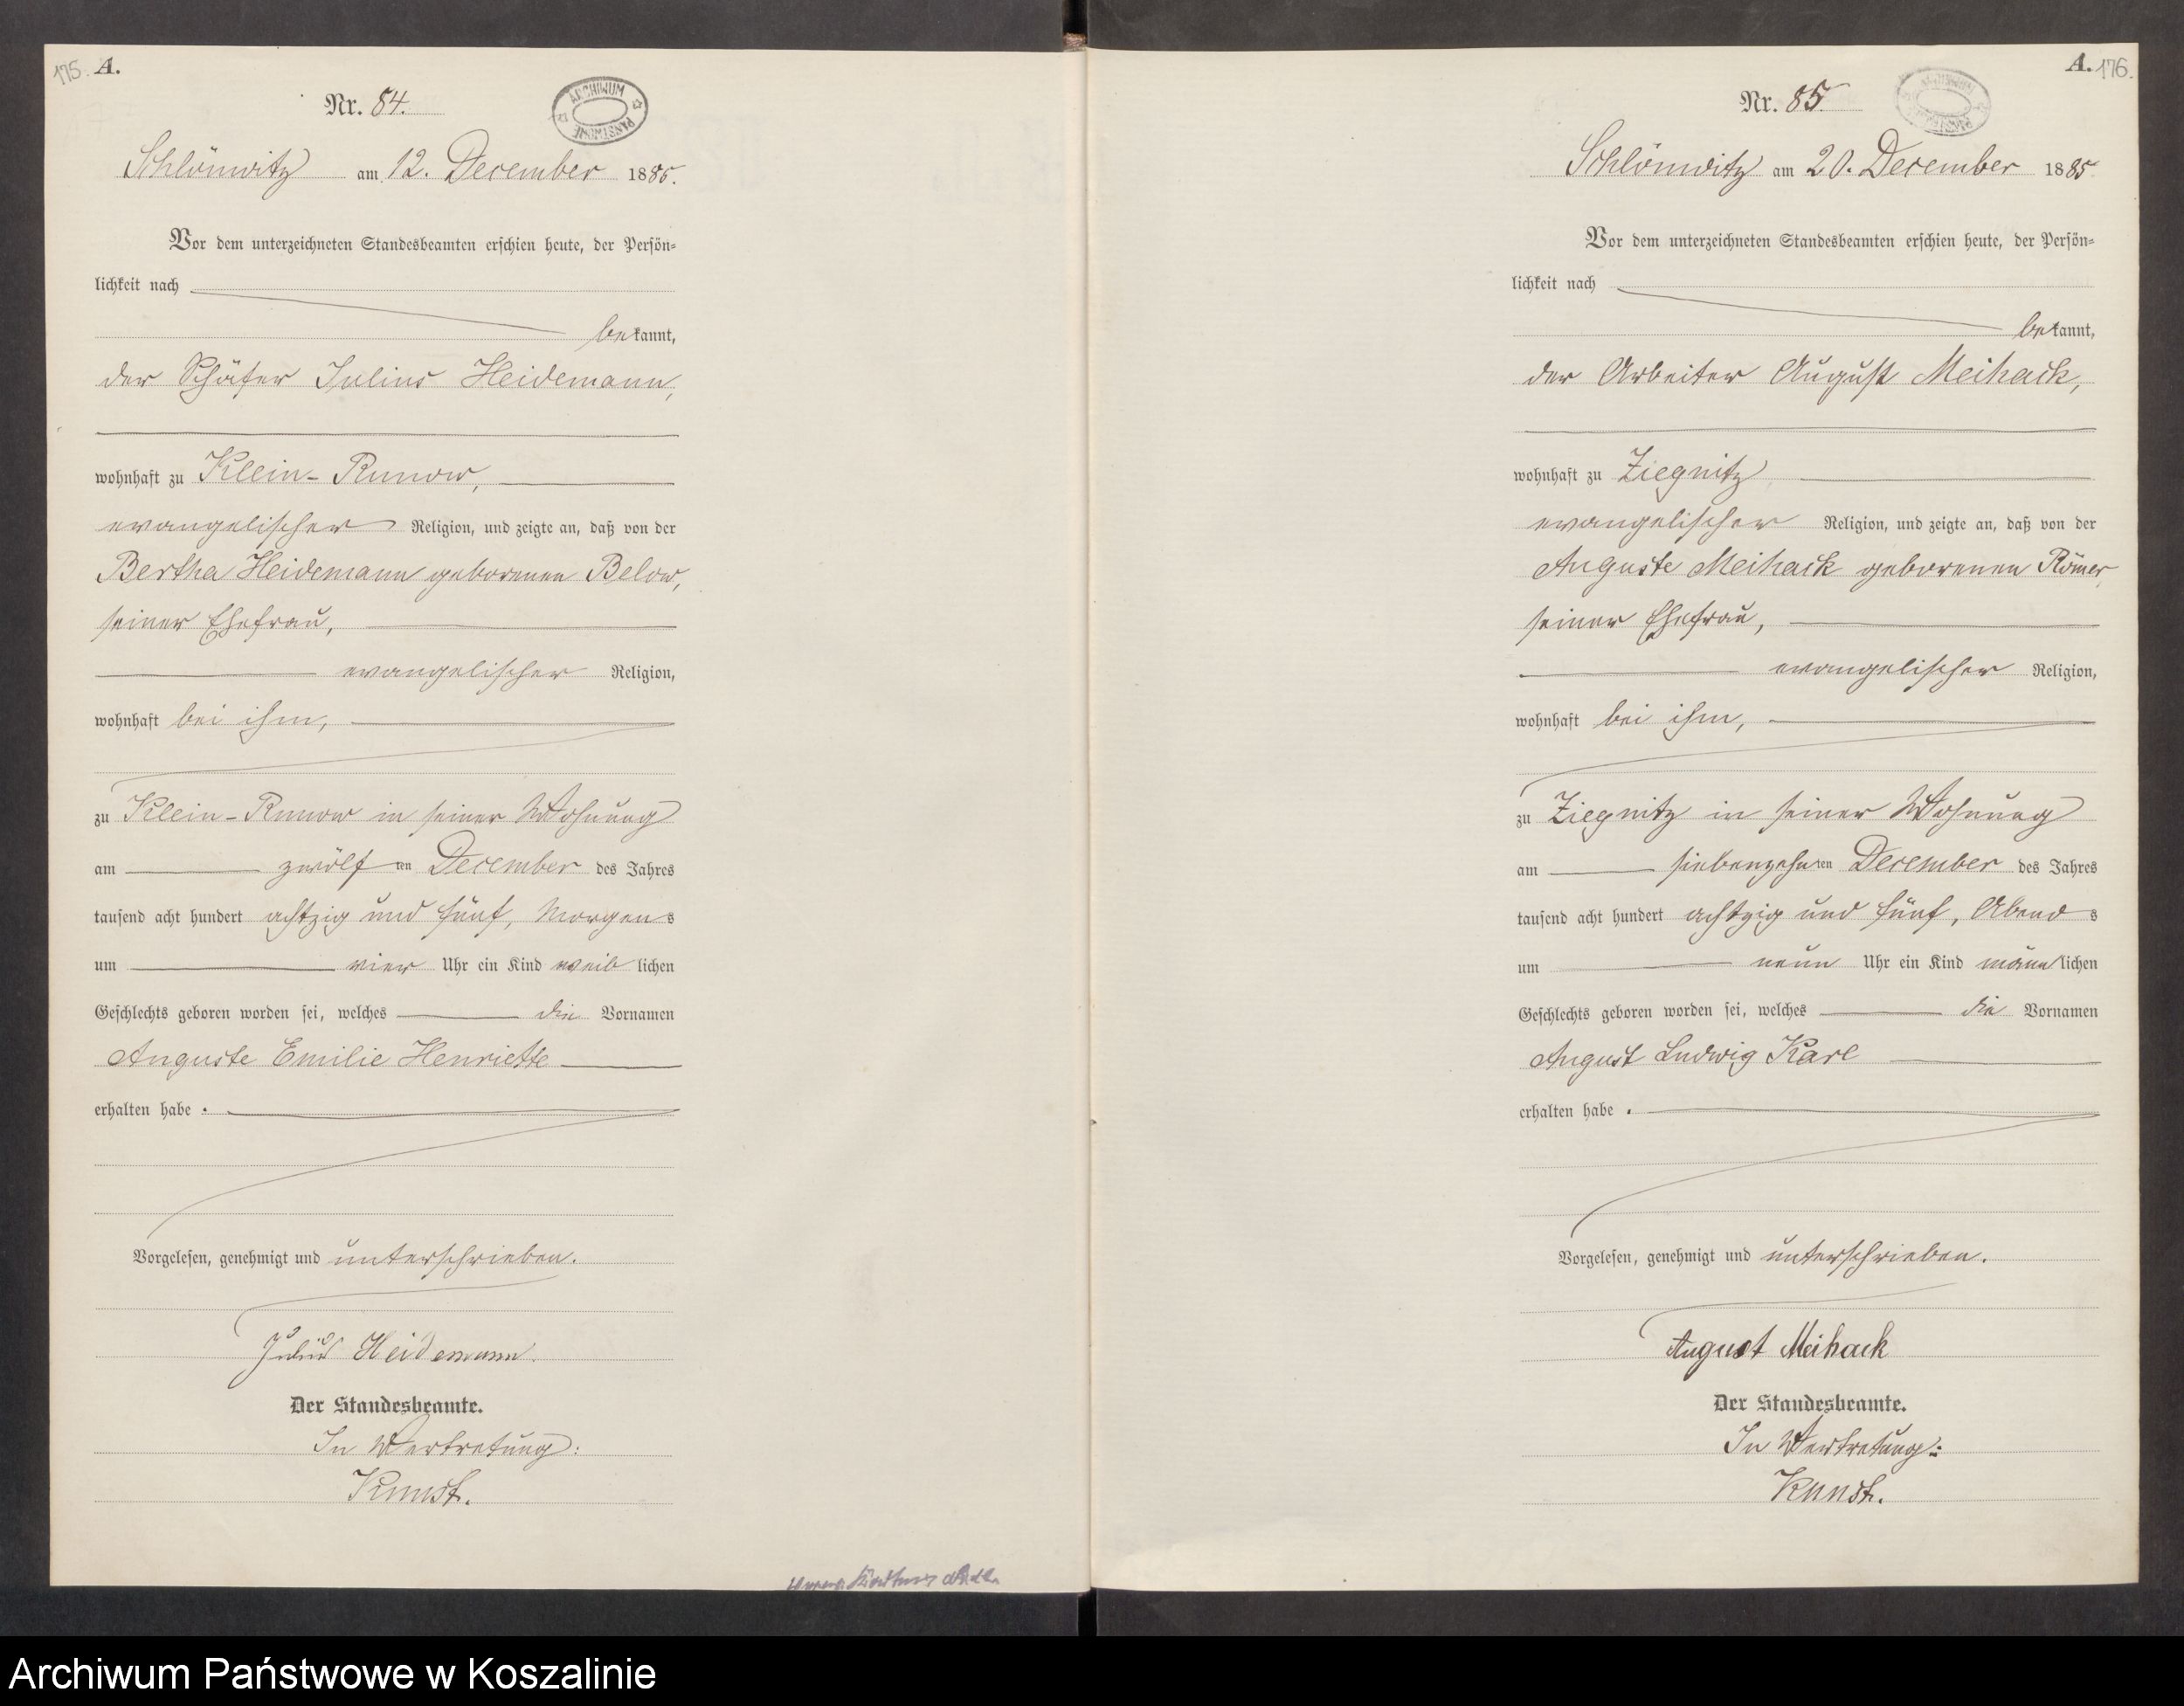 175. A.
Nr. 84.
ARCHIWUM PAŃSTWOWE
Schlönwitz am 12. December 1885.
Vor dem unterzeichneten Standesbeamten erschien heute, der Persön-
lichkeit nach
bekannt,
der Schäfer Julius Heidemann,
wohnhaft zu Klein-Runow,
evangelischer Religion, und zeigte an, daß von der
Bertha Heidemann geborenen Below,
seiner Ehefrau,
evangelischer Religion,
wohnhaft bei ihm,
zu Klein-Runow in seiner Wohnung
am zwölften December des Jahres
tausend acht hundert achtzig und fünf, Morgens
um vier Uhr ein Kind weiblichen
Geschlechts geboren worden sei, welches die Vornamen
Auguste Emilie Henriette
erhalten habe.
Vorgelesen, genehmigt und unterschrieben.
Julius Heidemann
Der Standesbeamte.
In Vertretung:
Kunst.
A. 176.
Nr. 85.
ARCHIWUM PAŃSTWOWE
Schlönwitz am 20. December 1885.
Vor dem unterzeichneten Standesbeamten erschien heute, der Persön-
lichkeit nach
bekannt,
der Arbeiter August Meihack,
wohnhaft zu Ziegnitz
evangelischer Religion, und zeigte an, daß von der
Auguste Meihack geborenen Römer,
seiner Ehefrau,
evangelischer Religion,
wohnhaft bei ihm,
zu Ziegnitz in seiner Wohnung
am siebenzehnten December des Jahres
tausend acht hundert achtzig und fünf, Abends
um neun Uhr ein Kind männlichen
Geschlechts geboren worden sei, welches die Vornamen
August Ludwig Karl
erhalten habe.
Vorgelesen, genehmigt und unterschrieben.
August Meihack
Der Standesbeamte.
In Vertretung:
Kunst.
Archiwum Państwowe w Koszalinie